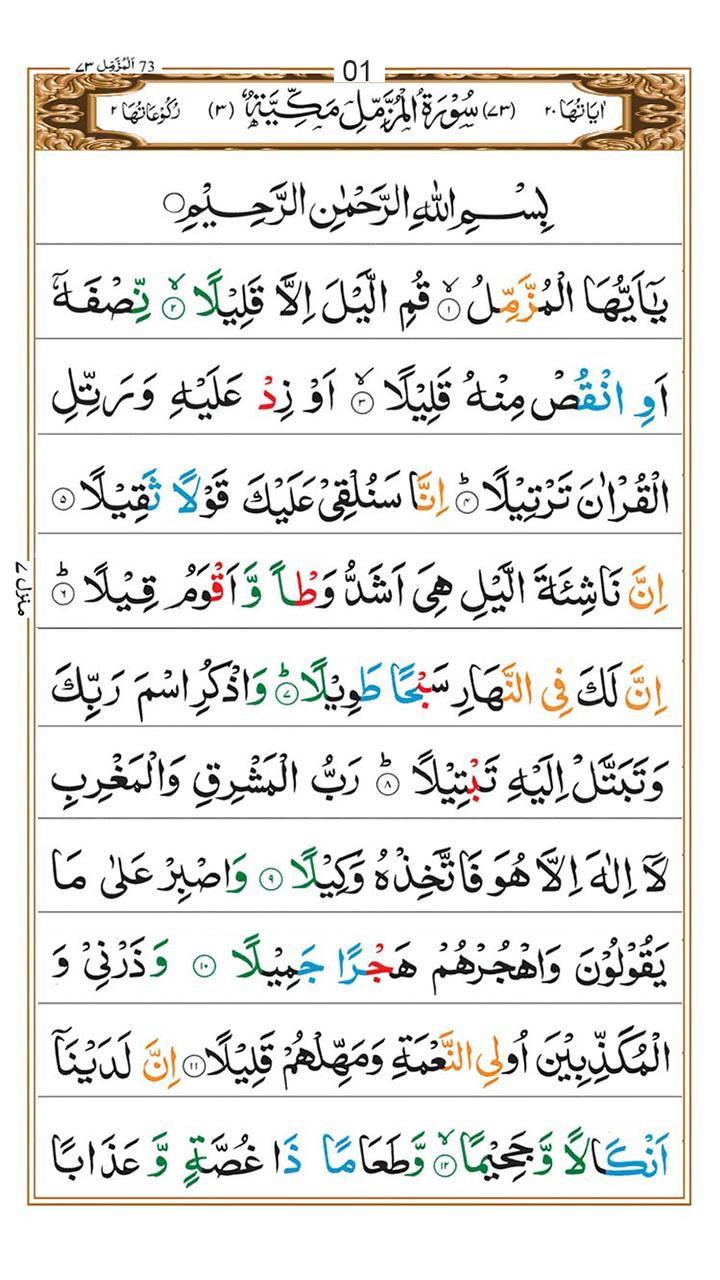 اَلْمُزَّمِّل ٧٣ 73
01
اٰيَاتُهَا ٢٠ (٧٣) سُوْرَةُ الْمُزَّمِّلِ مَكِّيَّةٌ (٣) رُكُوْعَاتُهَا ٢
بِسْمِ اللّٰهِ الرَّحْمٰنِ الرَّحِيْمِ ○
يٰۤاَيُّهَا الْمُزَّمِّلُ ۙ﴿۱﴾ قُمِ الَّيْلَ اِلَّا قَلِيْلًا ۙ﴿۲﴾ نِّصْفَهٗۤ
اَوِ انْقُصْ مِنْهُ قَلِيْلًا ۙ﴿۳﴾ اَوْ زِدْ عَلَيْهِ وَرَتِّلِ
الْقُرْاٰنَ تَرْتِيْلًا ؕ﴿۴﴾ اِنَّا سَنُلْقِيْ عَلَيْكَ قَوْلًا ثَقِيْلًا ﴿۵﴾
اِنَّ نَاشِئَةَ الَّيْلِ هِيَ اَشَدُّ وَطْاً وَّاَقْوَمُ قِيْلًا ؕ﴿۶﴾
اِنَّ لَكَ فِي النَّهَارِ سَبْحًا طَوِيْلًا ؕ﴿۷﴾ وَاذْكُرِ اسْمَ رَبِّكَ
وَتَبَتَّلْ اِلَيْهِ تَبْتِيْلًا ؕ﴿۸﴾ رَبُّ الْمَشْرِقِ وَالْمَغْرِبِ
لَاۤ اِلٰهَ اِلَّا هُوَ فَاتَّخِذْهُ وَكِيْلًا ﴿۹﴾ وَاصْبِرْ عَلٰى مَا
يَقُوْلُوْنَ وَاهْجُرْهُمْ هَجْرًا جَمِيْلًا ﴿۱۰﴾ وَذَرْنِيْ وَ
الْمُكَذِّبِيْنَ اُولِي النَّعْمَةِ وَمَهِّلْهُمْ قَلِيْلًا ﴿۱۱﴾ اِنَّ لَدَيْنَاۤ
اَنْكَالًا وَّجَحِيْمًا ۙ﴿۱۲﴾ وَّطَعَامًا ذَا غُصَّةٍ وَّ عَذَابًا
منزل ٧